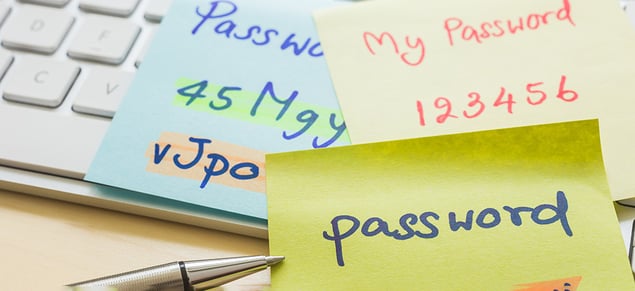 Passwo
45Mgy
vJpo
My Password
123456
password